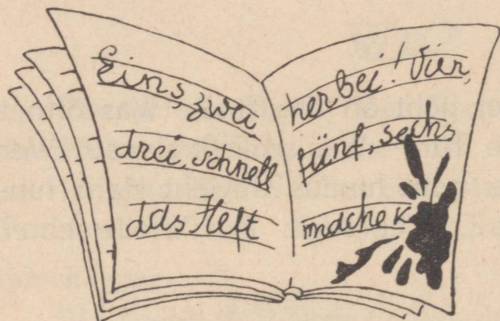 Eins, zwei
drei, schnell
das Heft
herbei! Vier,
fünf, sechs
mache K